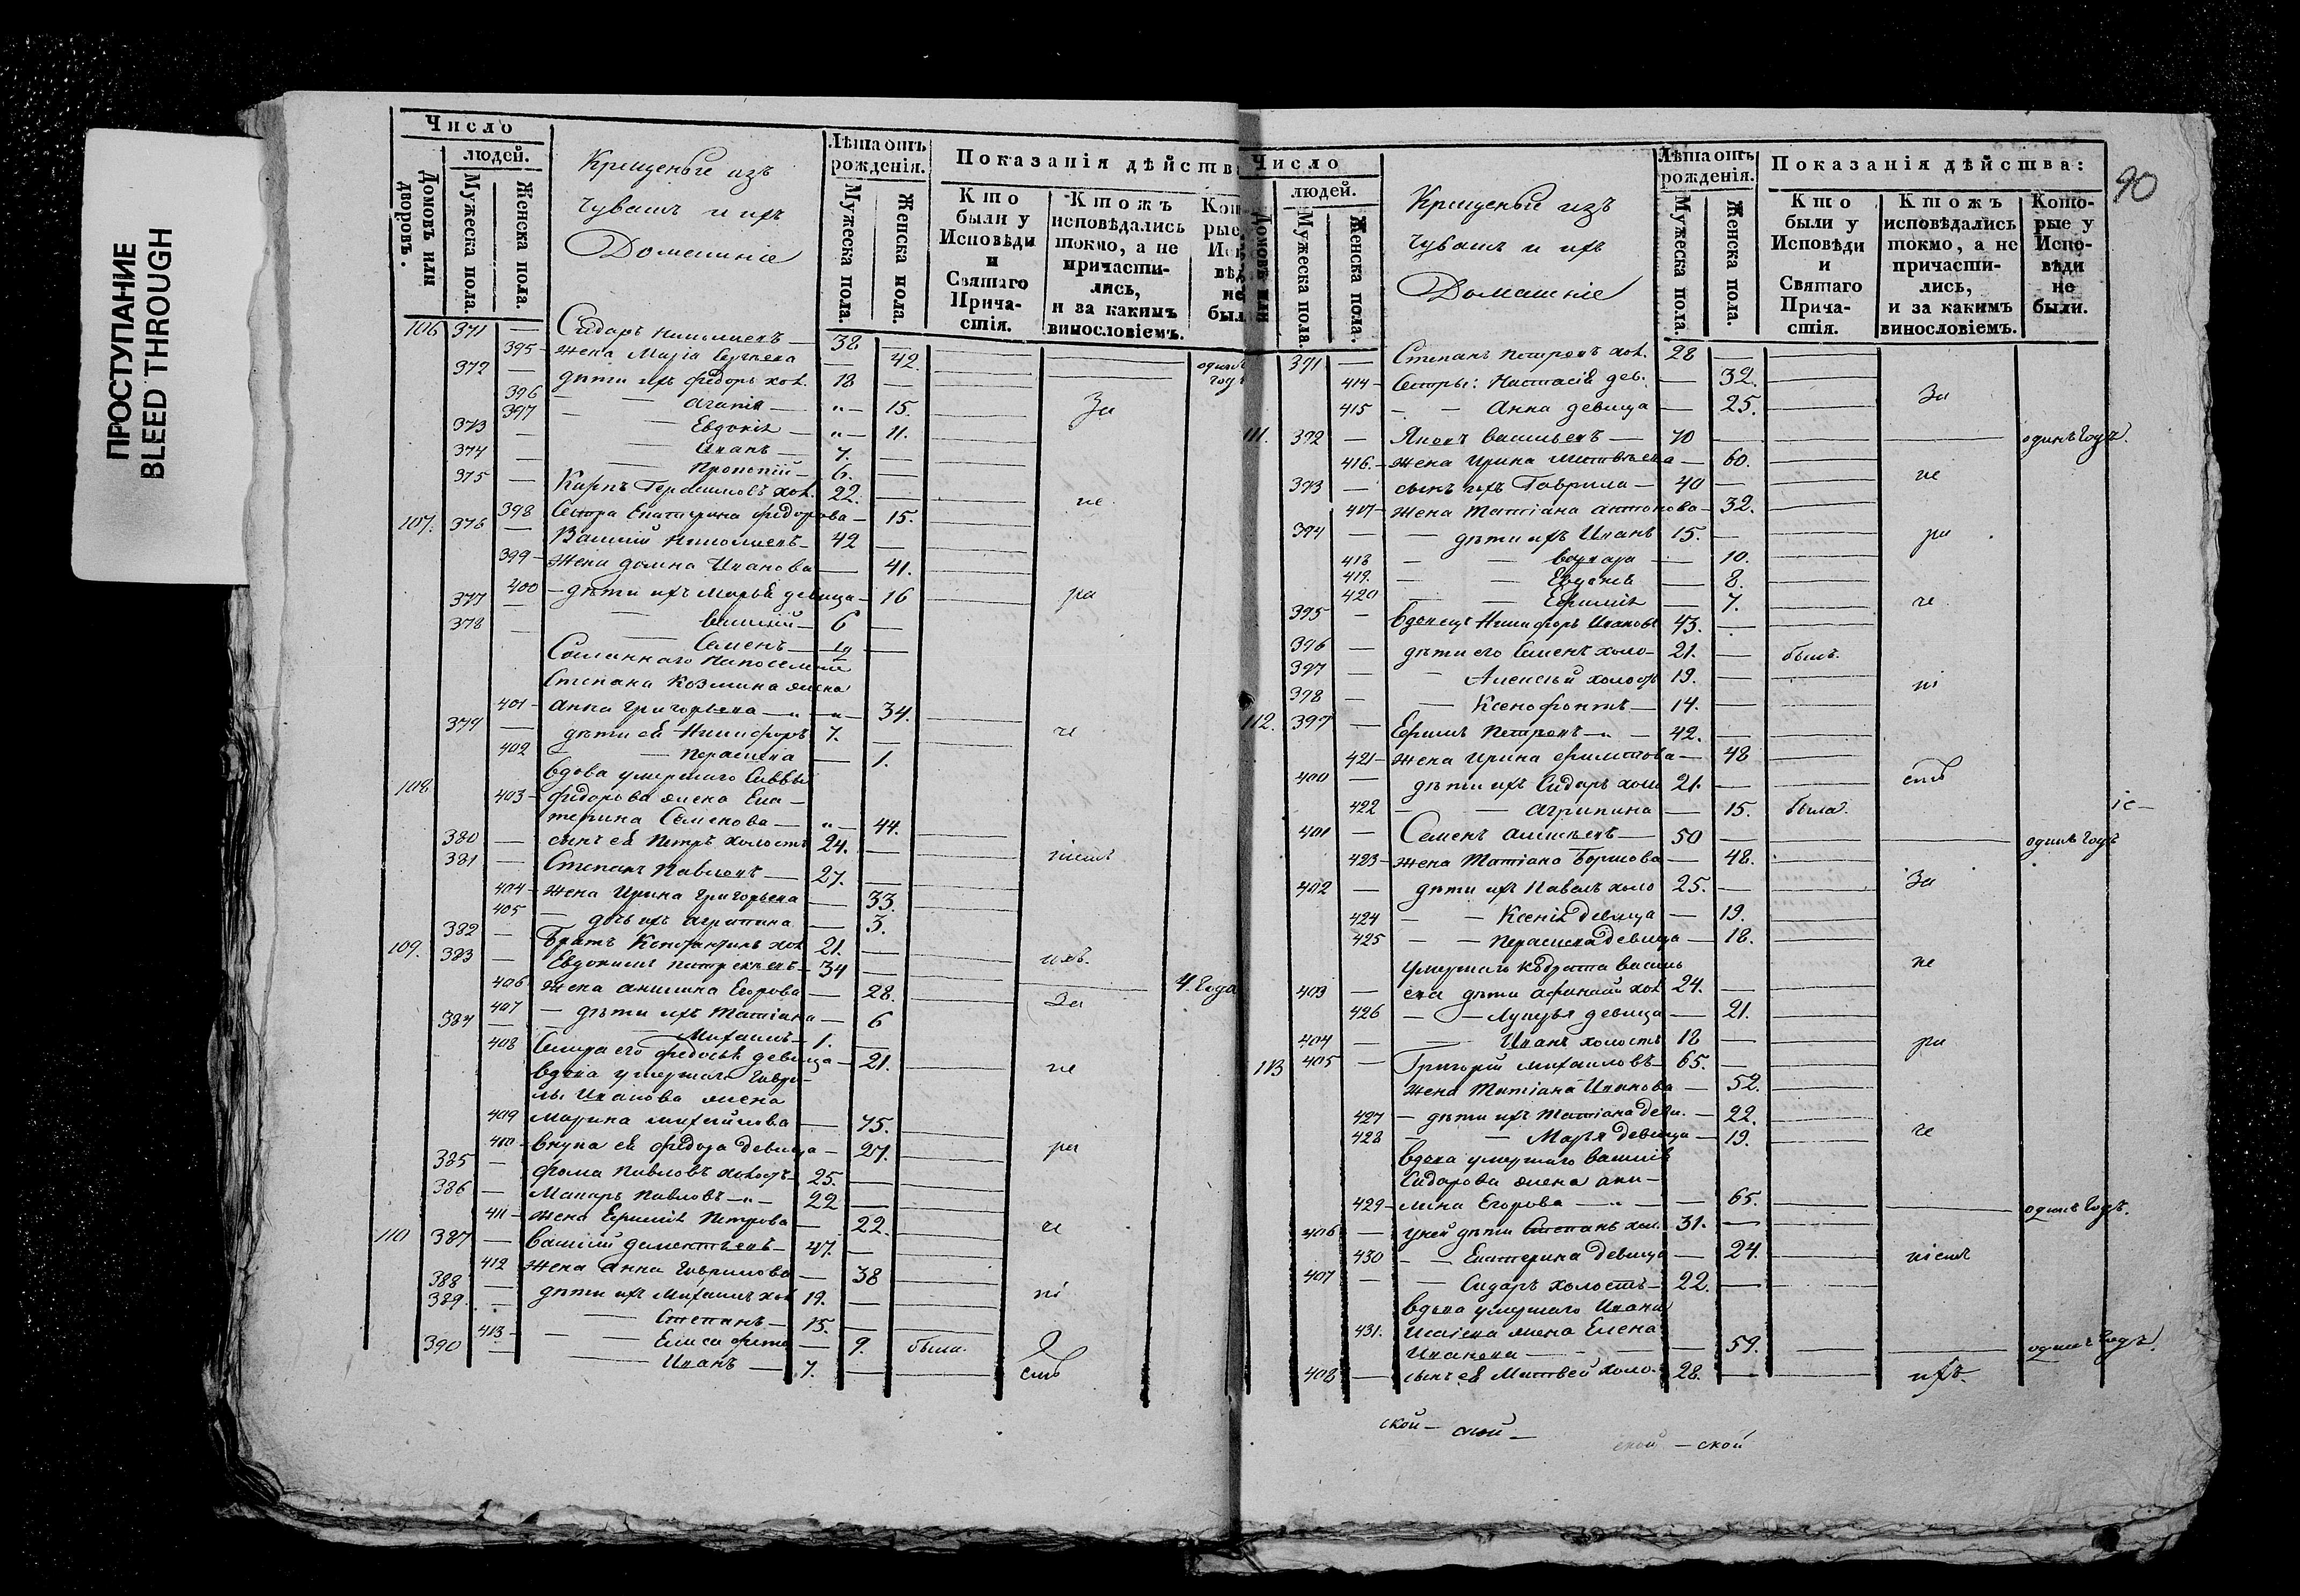 ПРОСТУПАНИЕ
BLEED THROUGH
Число
людей.
Домовъ или дворовъ.
Мужеска пола.
Женска пола.
Крещеные изъ
Чувашъ и ихъ
Домашніе
Лѣта отъ рожденія.
Мужеска пола.
Женска пола.
Показанія дѣйств
Кто были у Исповѣди и Святаго Причастія.
Ктожъ исповѣдались токмо, а не причастились, и за какимъ винословіемъ.
106 371 — Сидоръ 38 —
395 — жена Марія — 42.
372 — дѣти ихъ Федоръ хол. 18 — одинъ годъ
396 — Агапія — 15. За
397 — Евдокія — 11.
373 — Иванъ — 7.
374 — Прокопій — 6.
375 — Карпъ Герасимовъ хол. 22. — не
398 Сестра Екатерина Федорова — 15.
107. 376 — Василий 42 —
399 — жена Домна Иванова — 41.
400 — дѣти ихъ Марья девица — 16 ра
377 — Василій — 6 —
378 — Семенъ —
Степана Козмина жена
401 — Анна Григорьева — 34.
379 — дѣти ея Никифоръ 7. че
402 — 1.
вдова умершаго Саввы
108 403 — Федорова жена Ека-
терина Семенова — 44.
380 — сынъ ея Петръ холостъ 24. —
381 — Степанъ Павловъ — 27. — ніемъ
404 — жена Ирина Григорьева — 33.
405 — дочь ихъ Агрипина — 3.
382 — Братъ Константинъ хол 21. —
109. 383 — Евдокимъ 34 — ихъ.
406 — жена Акилина Егорова — 28. 4. года
407 — дѣти ихъ Татіана — 6 За
384 — Михаилъ — 1. —
408 Сестра его Федосья девица — 21. не
вдова умершаго Гаври-
лы Иванова жена
409 Марина Михайлова — 75.
410 — внука ея Федора девица — 27. ра
385 — Фома Павловъ холостъ — 25. —
386 — Макаръ Павловъ — 22 —
411 — жена Ефимія Петрова — 22. че
110 387 — Василій Дементьевъ — 47. —
412 жена Анна Гаврилова — 38
388 — дѣти ихъ Михаилъ хол 19. — ні
389. — Степанъ — 15. —
413 — — 9. была.
390 — Иванъ — 7. — емъ
90
Число
людей.
Домовъ или
Мужеска пола.
Женска пола.
Крещеные изъ
Чувашъ и ихъ
Домашніе
Лѣта отъ рожденія.
Мужеска пола.
Женска пола.
Показанія дѣйства:
Кто были у Исповѣди и Святаго Причастія.
Ктожъ исповѣдались токмо, а не причастились, и за какимъ винословіемъ.
Которые у Исповѣди не были.
371 — Степанъ Петровъ хол. 28 —
414 — Сестры: Настасія дев. — 32. За
415 — Анна девица — 25.
111. 392 — Яковъ Васильевъ — 70 — одинъ годъ.
416. — жена Ирина Матвѣева — 60. не
393 — сынъ ихъ Гаврила — 40 —
417 — жена Татіана Антонова — 32.
394 — дѣти ихъ Иванъ 15. — ра
418 — Варвара — 10.
419. — — 8.
420 — Ефимія — 7. че
395 — вдовецъ Никифоръ Ивановъ 43. —
396 — дѣти его Семенъ холо- 21. — былъ.
397 — Алексѣй холостъ 19. ні
398 — Ксенофонтъ — 14. —
112. 397 — Ефимъ Петровъ — 42. —
421 — жена Ирина Филипова — 48
400 — дѣти ихъ Сидаръ холо 21. — емъ
422 — Агрипина — 15. была.
401 — Семенъ 50 — одинъ годъ
423 — жена Татіана Борисова — 48.
402 — дѣти ихъ Павелъ холо 25. — За
424 — Ксенія девица — 19.
425 — девица — 18.
умершаго не
403 — ева дѣти Афанасій хол 24. —
426 — Лукерья девица — 21.
404 — Иванъ холостъ 18 — ра
113 405 — Григорій Михаиловъ — 65. —
жена Татіана Иванова — 52.
427 — дѣти ихъ Татіана деви. — 22.
428 — Марья девица — 19. че
вдова умершаго Василія
Сидарова жена Аки-
429 — лина Егорова — 65. одинъ годъ.
406 — у ней дѣти Степанъ хол. 31. —
430 — Екатерина девица — 24. ніемъ
407 — Сидаръ холостъ — 22. —
вдова умершаго Ивана
431. жена Елена
Иванова — 59. одинъ годъ.
408 — сынъ ея Матвей холо. 28. — ихъ.
ской — ской —
ской — ской